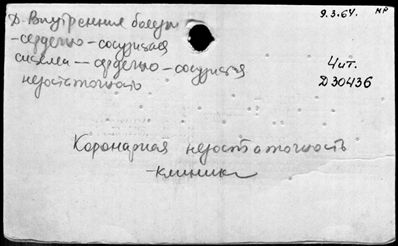 Д. Внутренния болезни
9.3.64.
МР
-сердечно-сосудистая
система-- сердечно-сосудистая
Чит.
недостаточность
Д30436
Коронарная недостаточность
-клиника